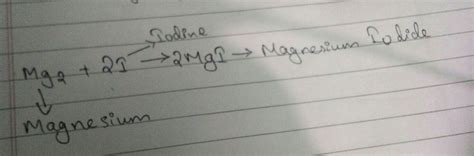 Iodine
Mg2 + 2I → 2MgI → Magnesium Iodide
Magnesium